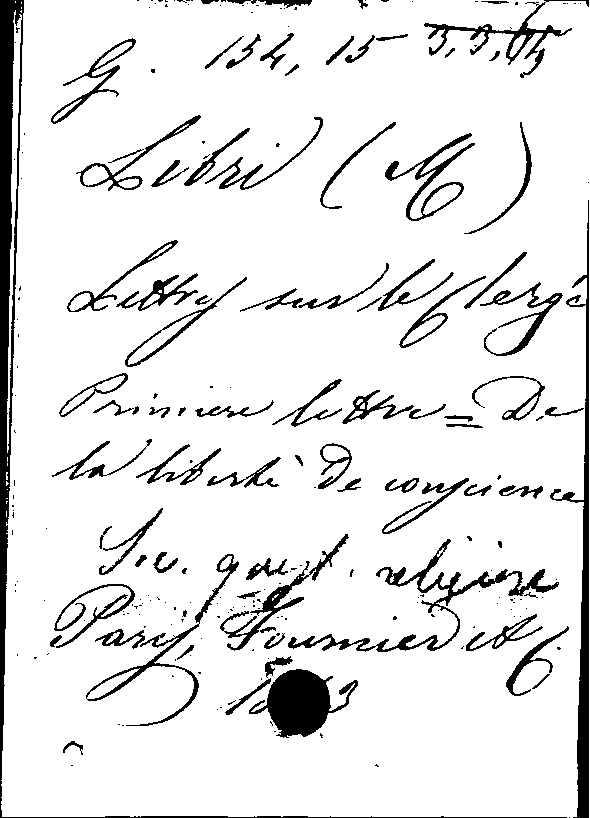 G. 154, 15 3.3.
Libri (M)
Lettres sur le Clergé
Premiere lettre = De
la liberté de conscience
quest. religieuse
Paris, Fournier et C
3